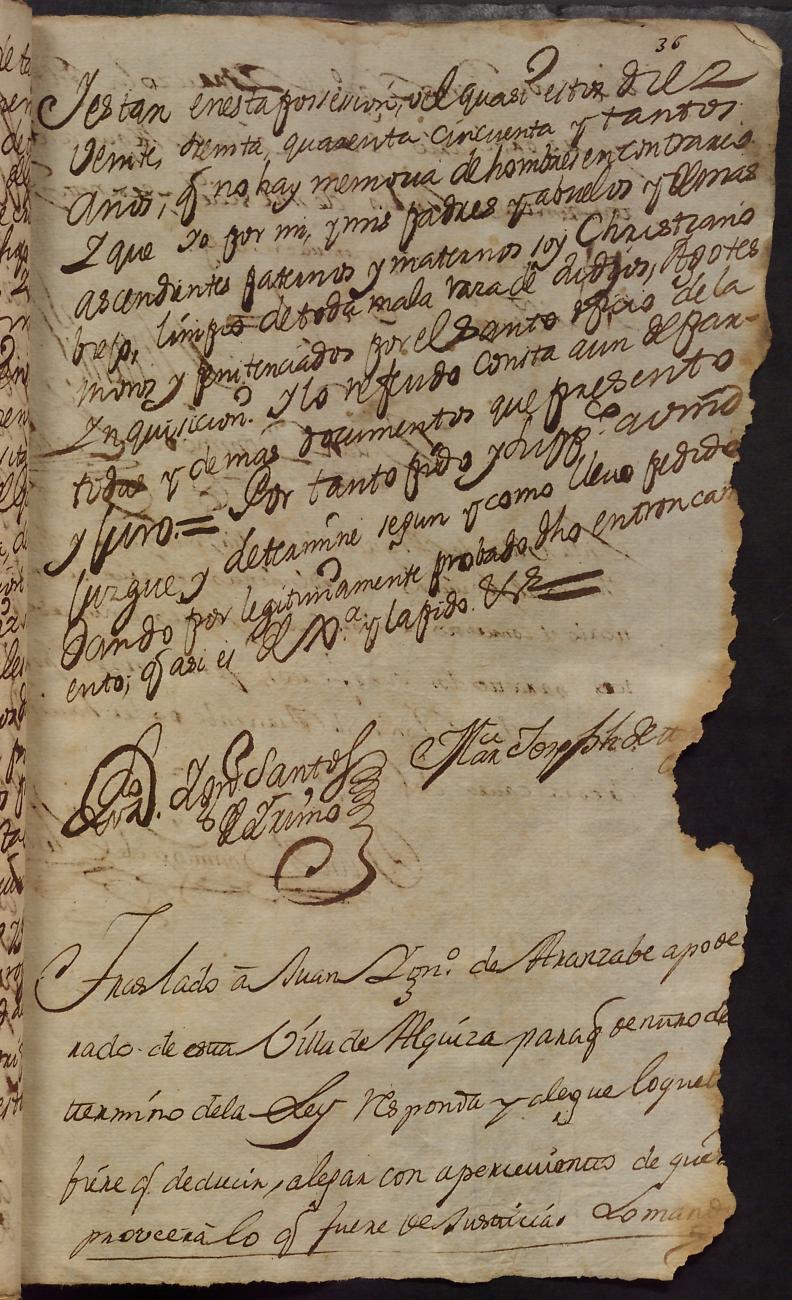 36
Y estan en esta possesion, vel quasi estos Diez
Veinte, treinta, quarenta cincuenta y tantos
Años, q̃ no hay memoria de hombres en contrario
Y que yo por mi, y mis padres y abuelos y demas
ascendientes paternos y maternos soy Christiano
biejo, limpio de toda mala raza de Judios, Agotes
moros y penitenciados por el Santo oficio de la
Inquisicion. y lo referido consta aun de par-
tidas y demas documentos que presento
y Juro.= Por tanto pido y supp.co a vmd
Juzgue y determine segun y como llevo pedido
Dando por legitimamente probado dho entroncam
ento, q̃ asi es de Jª. y la pido. &ª=
Ldo. Dn Ign.º Santos
Mrn Joseph de
Traslado â Juan Ygn.º de Aranzabe apode
rado de esta Villa de Alquiza paraq̃ dentro de
termino dela Ley responda y alegue loque
fiere q̃ deducir, alegar con apercevimto de que
proveerà lo q̃ fuere de Justicia. Lo mand